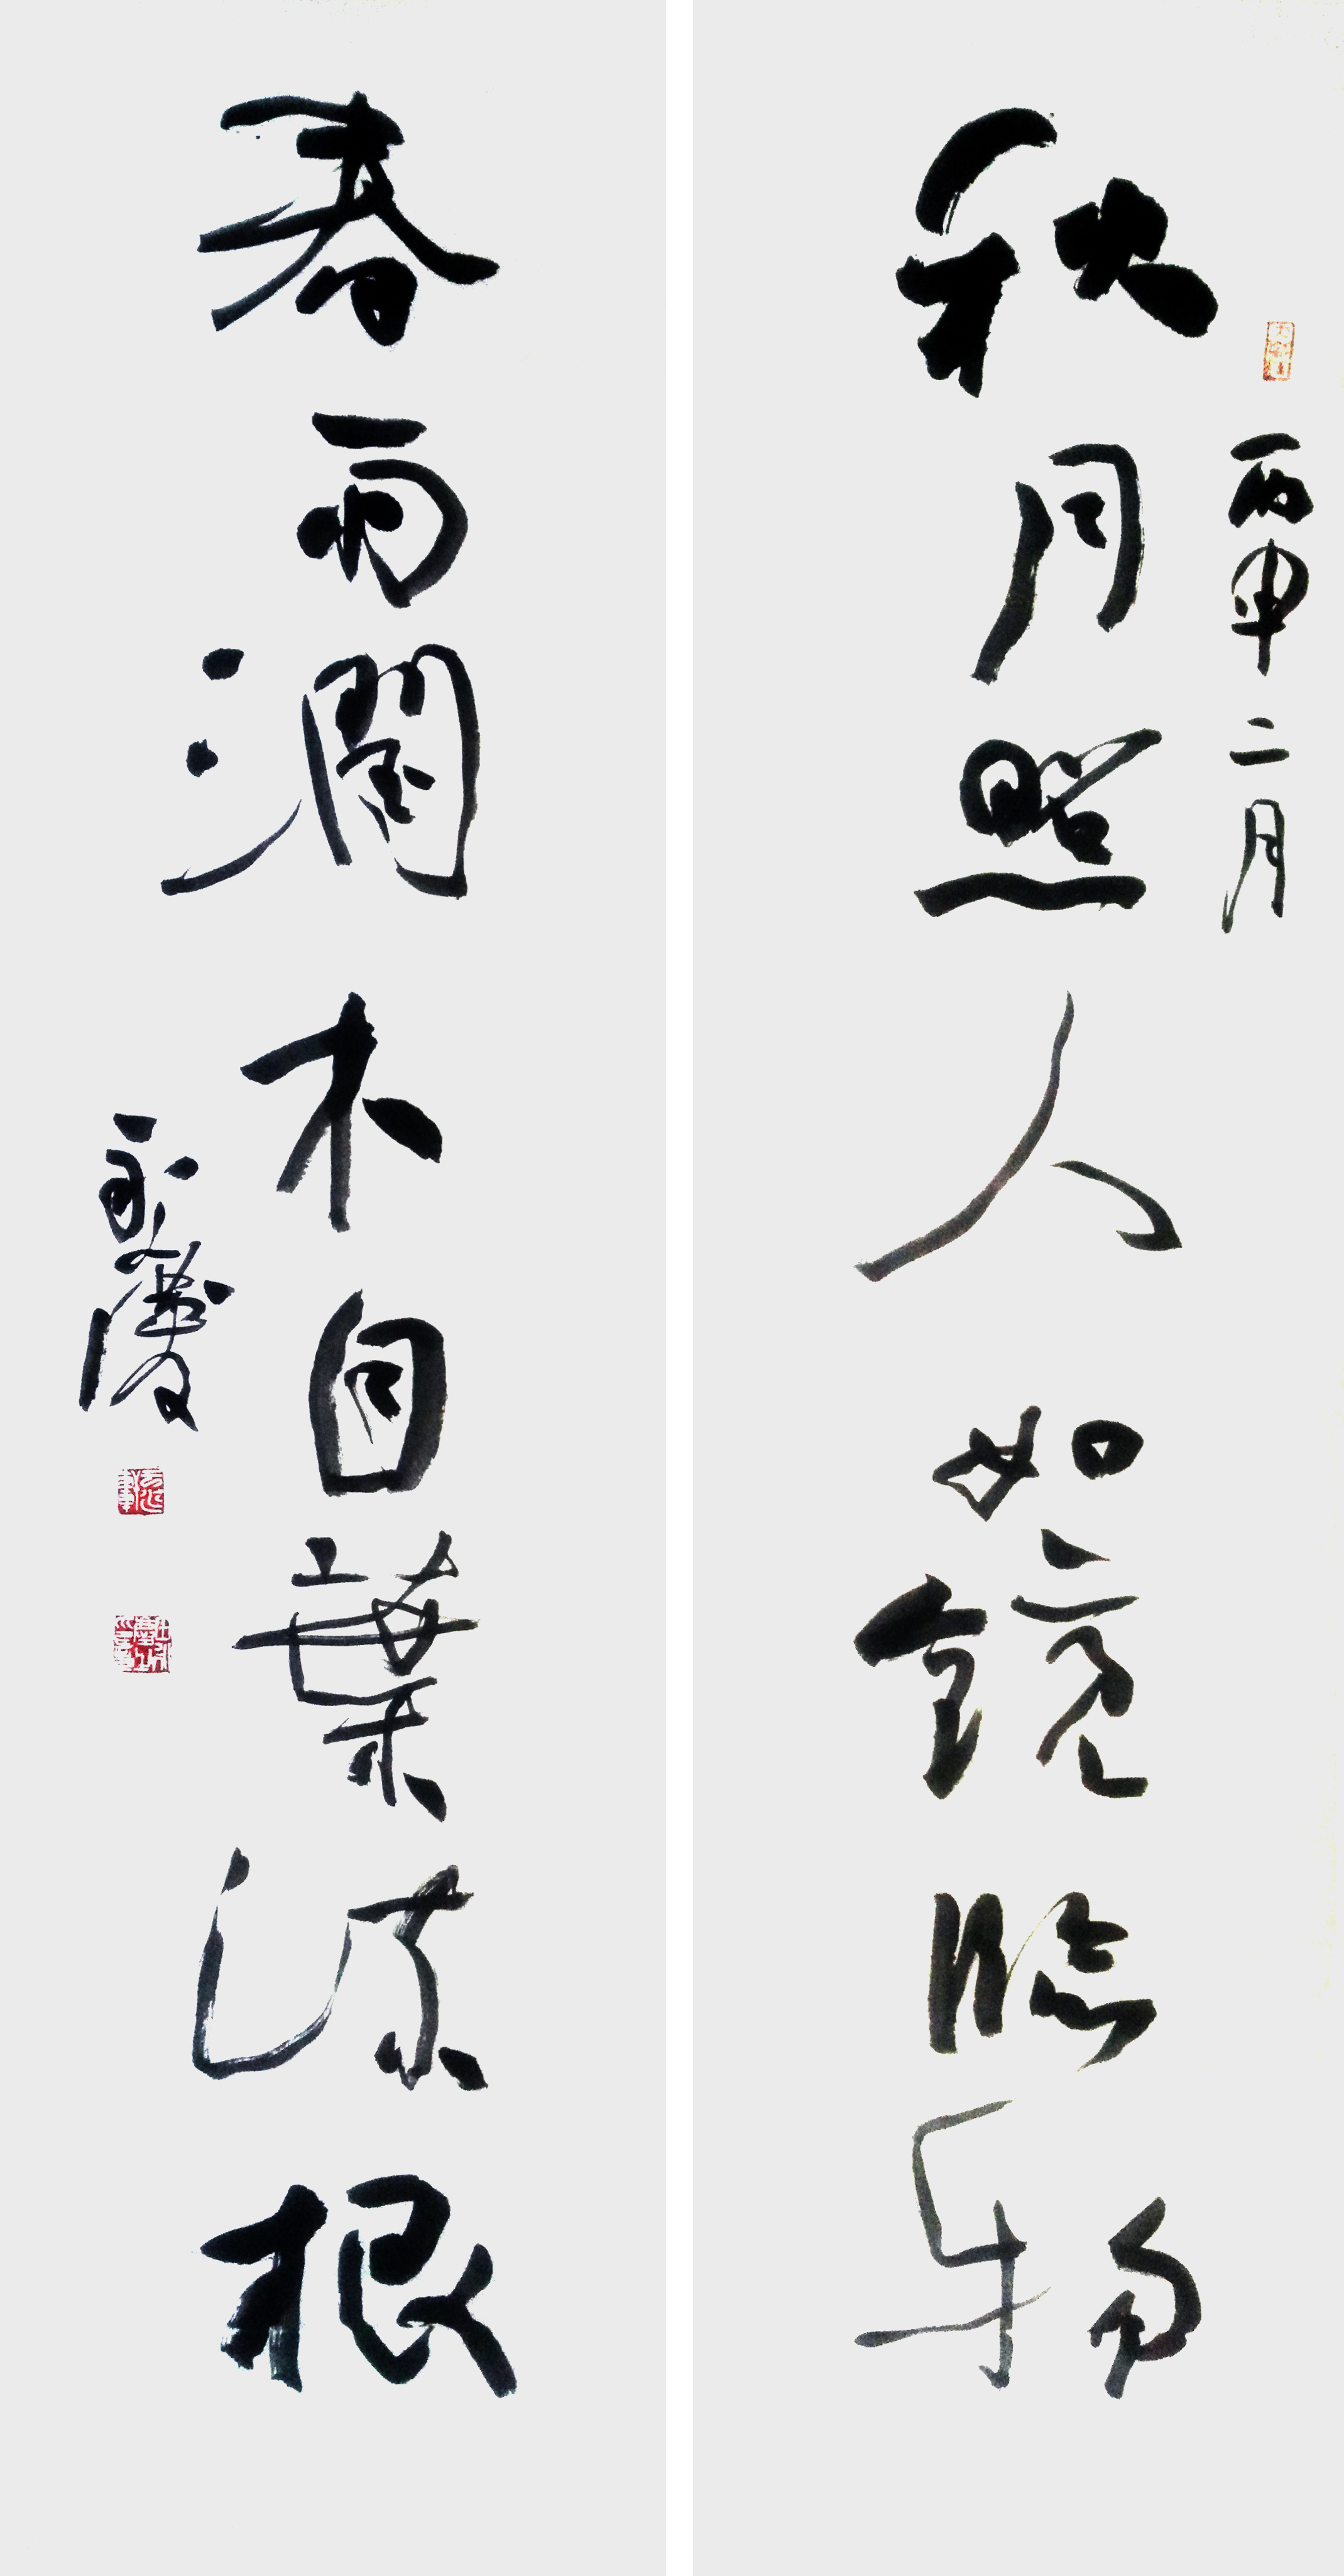 丙申二月
秋月照人如鏡臨物
春雨潤木自葉流根